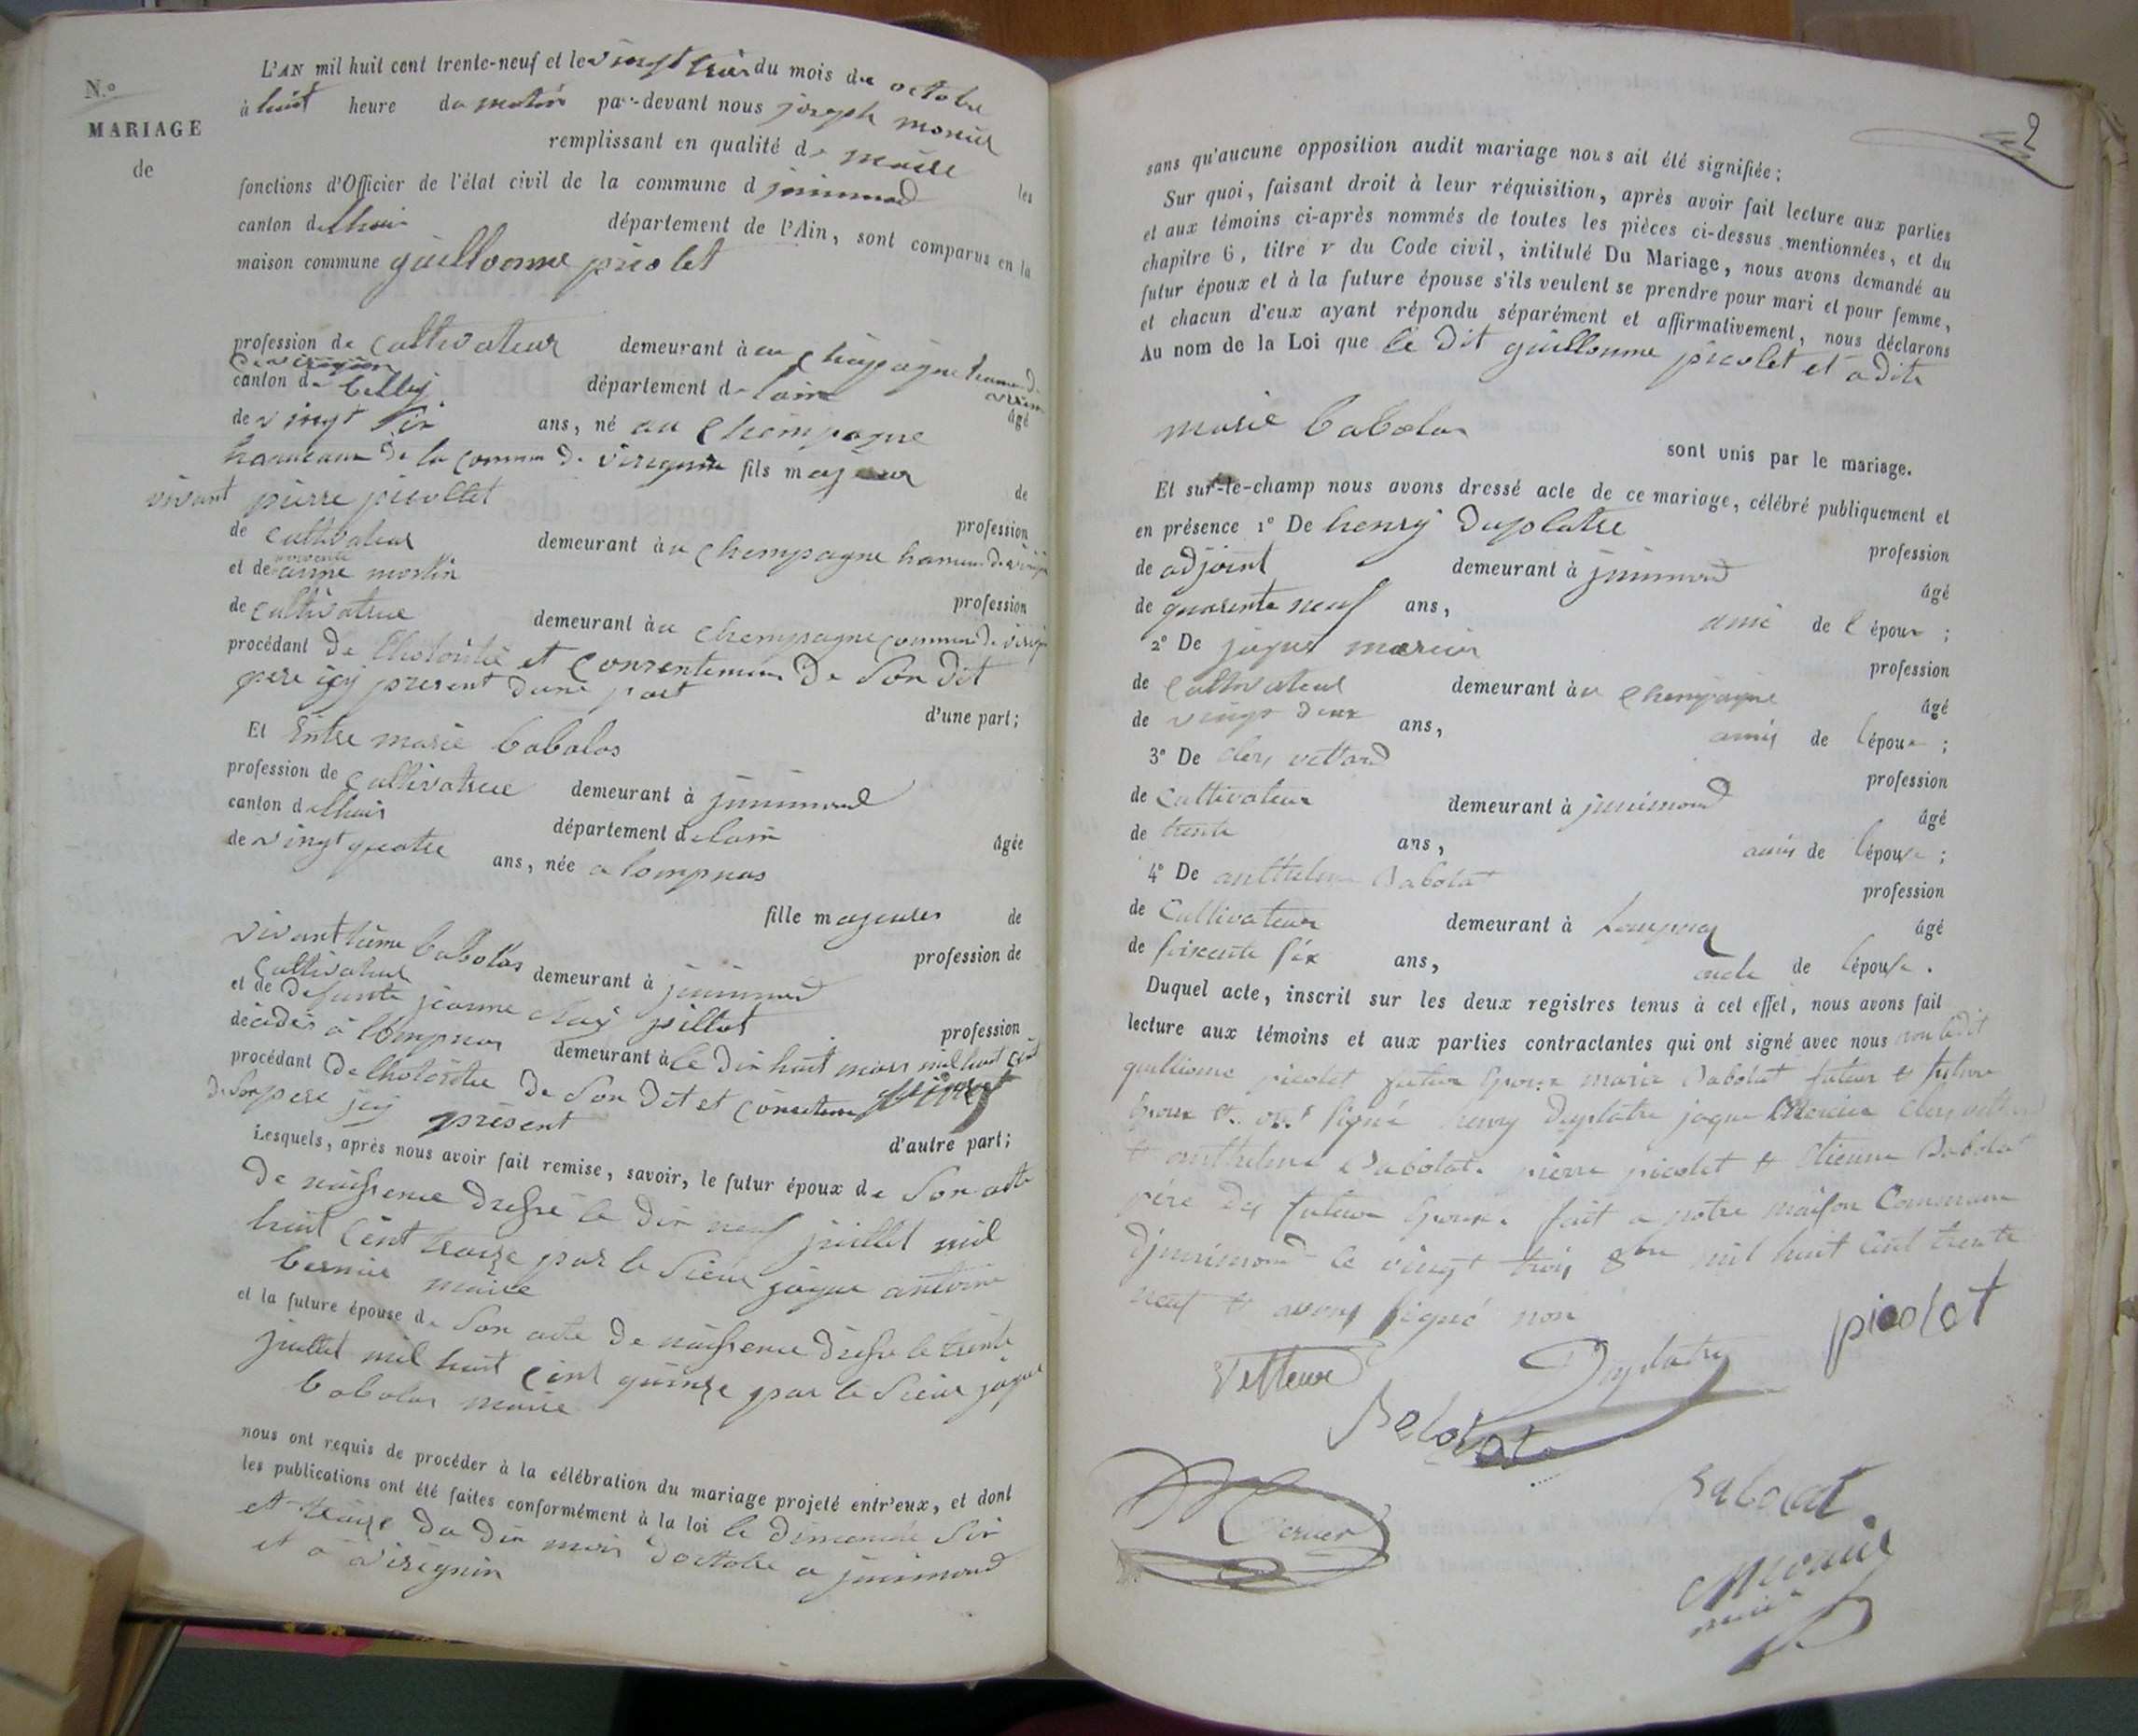 N.º
MARIAGE
de
L'AN mil huit cent trente-neuf et le vingt trois du mois de octobre
à huit heure du matin par-devant nous joseph monier
remplissant en qualité de maire les
fonctions d'Officier de l'état civil de la commune d jnnimond
canton de lhuis département de l'Ain, sont comparus en la
maison commune guillomme picolet
profession de cultivateur demeurant à au champagne hameau de
de virignin
canton de belley département de lain âgé
de vingt six ans, né au champagne
hameaux de la commune de virignin fils majeur de
vivant pierre picollet profession
de cultivateur demeurant à au champagne hameau de virignin
et de anne martin profession
de cultivatrice demeurant à au champagne commune de virignin
procédant de lhotorité et consentement de son dit
pere icy present dune part d'une part;
Et Entre marie babolas
profession de cultivatrice demeurant à jnnimond
canton de lhuis département de lain âgée
de vingt quatre ans, née a lompnas
fille majeure de
vivant babolas profession de
cultivateur demeurant à jnnimond
et de defunte jeanne pillot profession
décédés à lompnas demeurant à le dix huit mars mil huit cent
procédant de lhotorité de son dit et consentement
de son pere icy présent d'autre part;
Lesquels, après nous avoir fait remise, savoir, le futur époux de son acte
de naissence dressé le dix neuf juillet mil
huit cent treize par le sieur jaque antoine
bernier maire
et la future épouse de son acte de naissence dressé le trente
juillet mil huit cent quinze par le sieur jaque
babolas maire
nous ont requis de procéder à la célébration du mariage projeté entr'eux, et dont
les publications ont été faites conformément à la loi le dimenche six
et treize du dix mois doctobre a jnnimond
et a virignin
2
sans qu'aucune opposition audit mariage nous ait été signifiée;
Sur quoi, faisant droit à leur réquisition, après avoir fait lecture aux parties
et aux témoins ci-après nommés de toutes les pièces ci-dessus mentionnées, et du
chapitre 6, titre v du Code civil, intitulé Du Mariage, nous avons demandé au
futur époux et à la future épouse s'ils veulent se prendre pour mari et pour femme,
et chacun d'eux ayant répondu séparément et affirmativement, nous déclarons
Au nom de la Loi que le dit guillomme picolet et a dite
marie babolas
sont unis par le mariage.
Et sur-le-champ nous avons dressé acte de ce mariage, célébré publiquement et
en présence 1º De henry duplatre profession
de adjoint demeurant à jnnimond âgé
de quarente neuf ans, ami de l époux ;
2º De jaque mercier profession
de cultivateur demeurant à au champagne âgé
de vingt deux ans, amis de lépoux ;
3º De clery vettard profession
de cultivateur demeurant à jnnimond âgé
de trente ans, amis de lépouse ;
4º De anthelme Babolat profession
de Cultivateur demeurant à Lompnas âgé
de soixente six ans, oncle de lépouse .
Duquel acte, inscrit sur les deux registres tenus à cet effet, nous avons fait
lecture aux témoins et aux parties contractantes qui ont signé avec nous non ledit
guillomme picolet futur Epoux marie Babolat futur & future
Epoux & ont signé henry duplatre jaque Mercier clery vettard
& anthelme Babolat. pierre picolet & Etienne Babolat
père des futurs Epoux. fait a notre maison Commune
djnnimond le vingt trois 8bre mil huit cent trente
neuf & avons signé non
Vetteard Duplatre picolet
Babolat
Mercier Babolat
Monier
maire